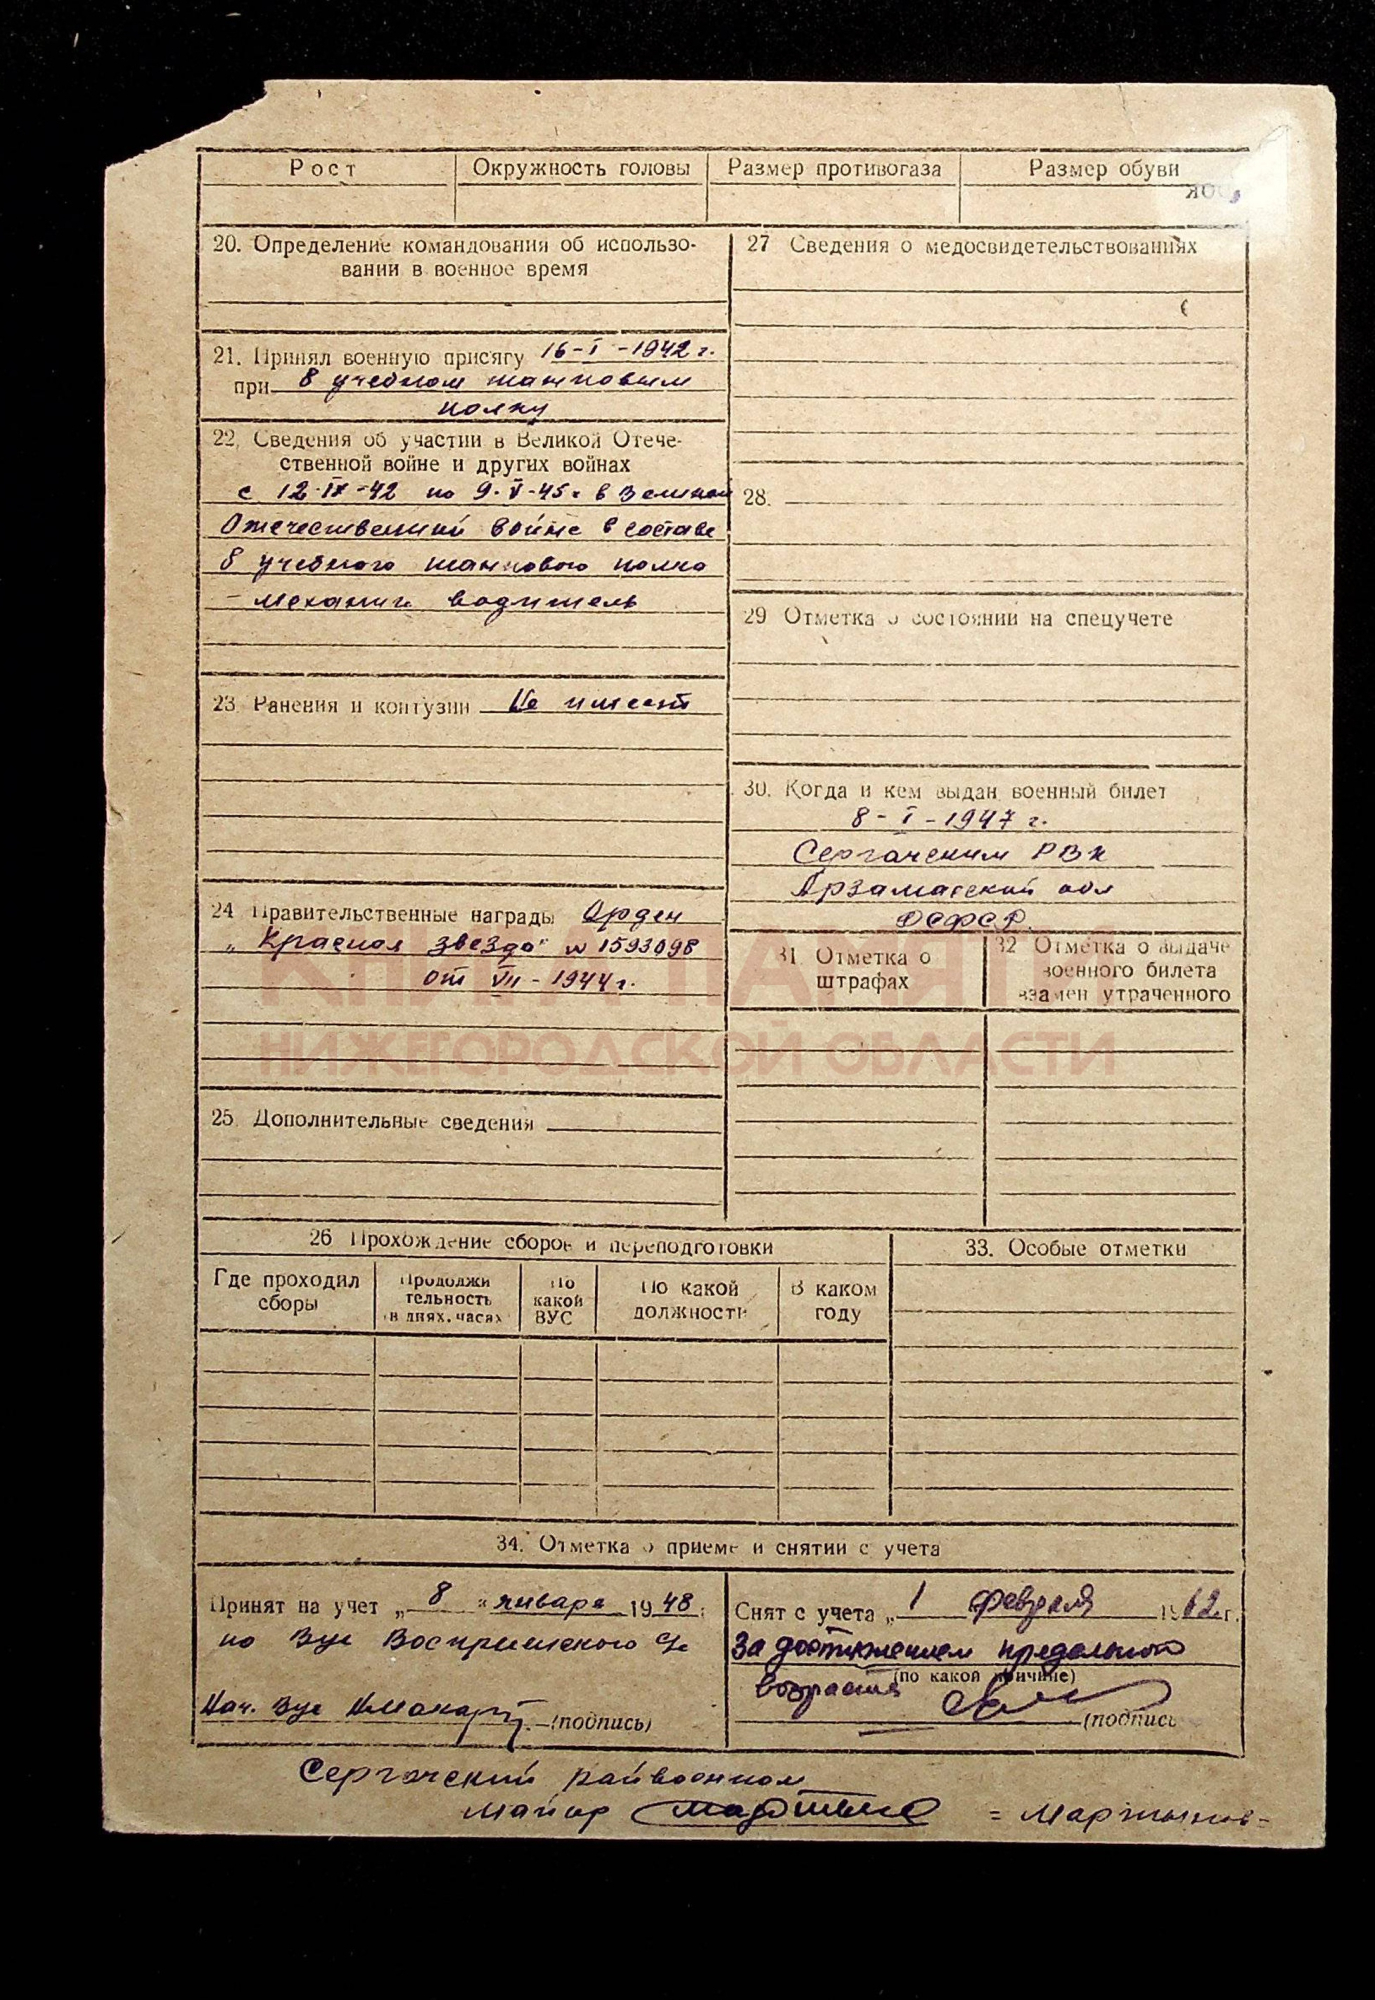 Рост
Окружность головы
Размер противогаза
Размер обуви
20. Определение командования об использо-
вании в военное время
21. Принял военную присягу 16-I-1942 г.
при 8 учебном танковым
полку
22. Сведения об участии в Великой Отече-
ственной войне и других войнах
с 12-IX-42 по 9-V-45 г в Великой
Отечественной войне в составе
8 учебного танкового полка
- механик водитель
23. Ранения и контузии Не имеет
24. Правительственные награды Орден
„Красная звезда" № 1593098
от VII-1944 г.
25. Дополнительные сведения
27 Сведения о медосвидетельствованиях
28.
29 Отметка о состоянии на спецучете
30. Когда и кем выдан военный билет
8-I-1947 г.
Сергачским РВК
Арзамасской обл
РСФСР.
31. Отметка о
штрафах
32 Отметка о выдаче
военного билета
взамен утраченного
КНИГА ПАМЯТИ
НИЖЕГОРОДСКОЙ ОБЛАСТИ
26 Прохождение сборов и переподготовки
Где проходил
сборы
Продолжи
тельность
в днях, часах
По
какой
ВУС
По какой
должности
В каком
году
33. Особые отметки
34. Отметка о приеме и снятии с учета
Принят на учет „8" января 1948 г.
по Вус
Нач. Вус
(подпись)
Снят с учета „1 февраля 1962 г.
За достижением предельного
(по какой причине)
возраста
(подпись
Сергачский райвоенком
Майор = Мартынов-